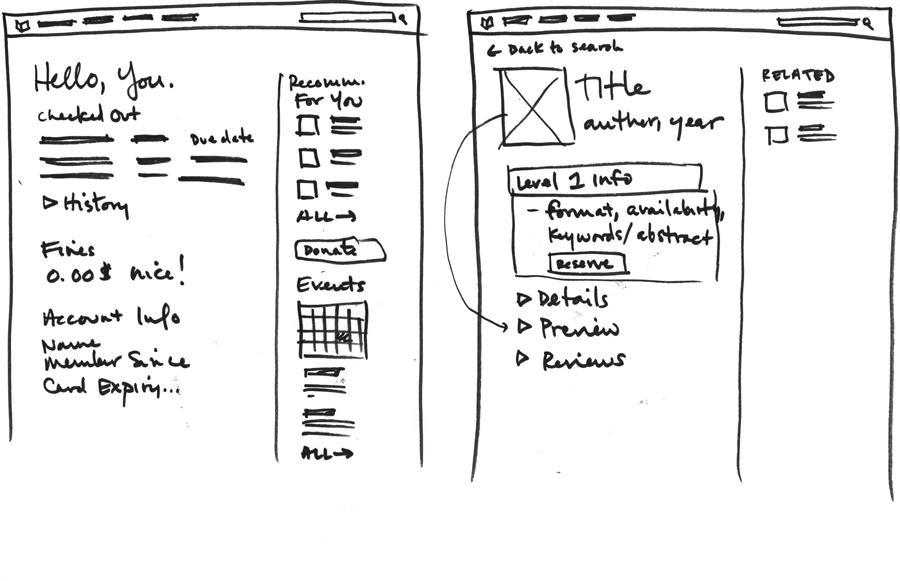 Hello, You.
Checked Out
Due date
▷ History
Fines
0.00$ nice!
Account Info
Name
Member Since
Card Expiry...
Recomm.
For You
ALL →
Donate
Events
ALL →
← Back to search
Title
author, year
Level 1 info
- format, availability,
keywords/abstract
Reserve
▷ Details
▷ Preview
▷ Reviews
RELATED